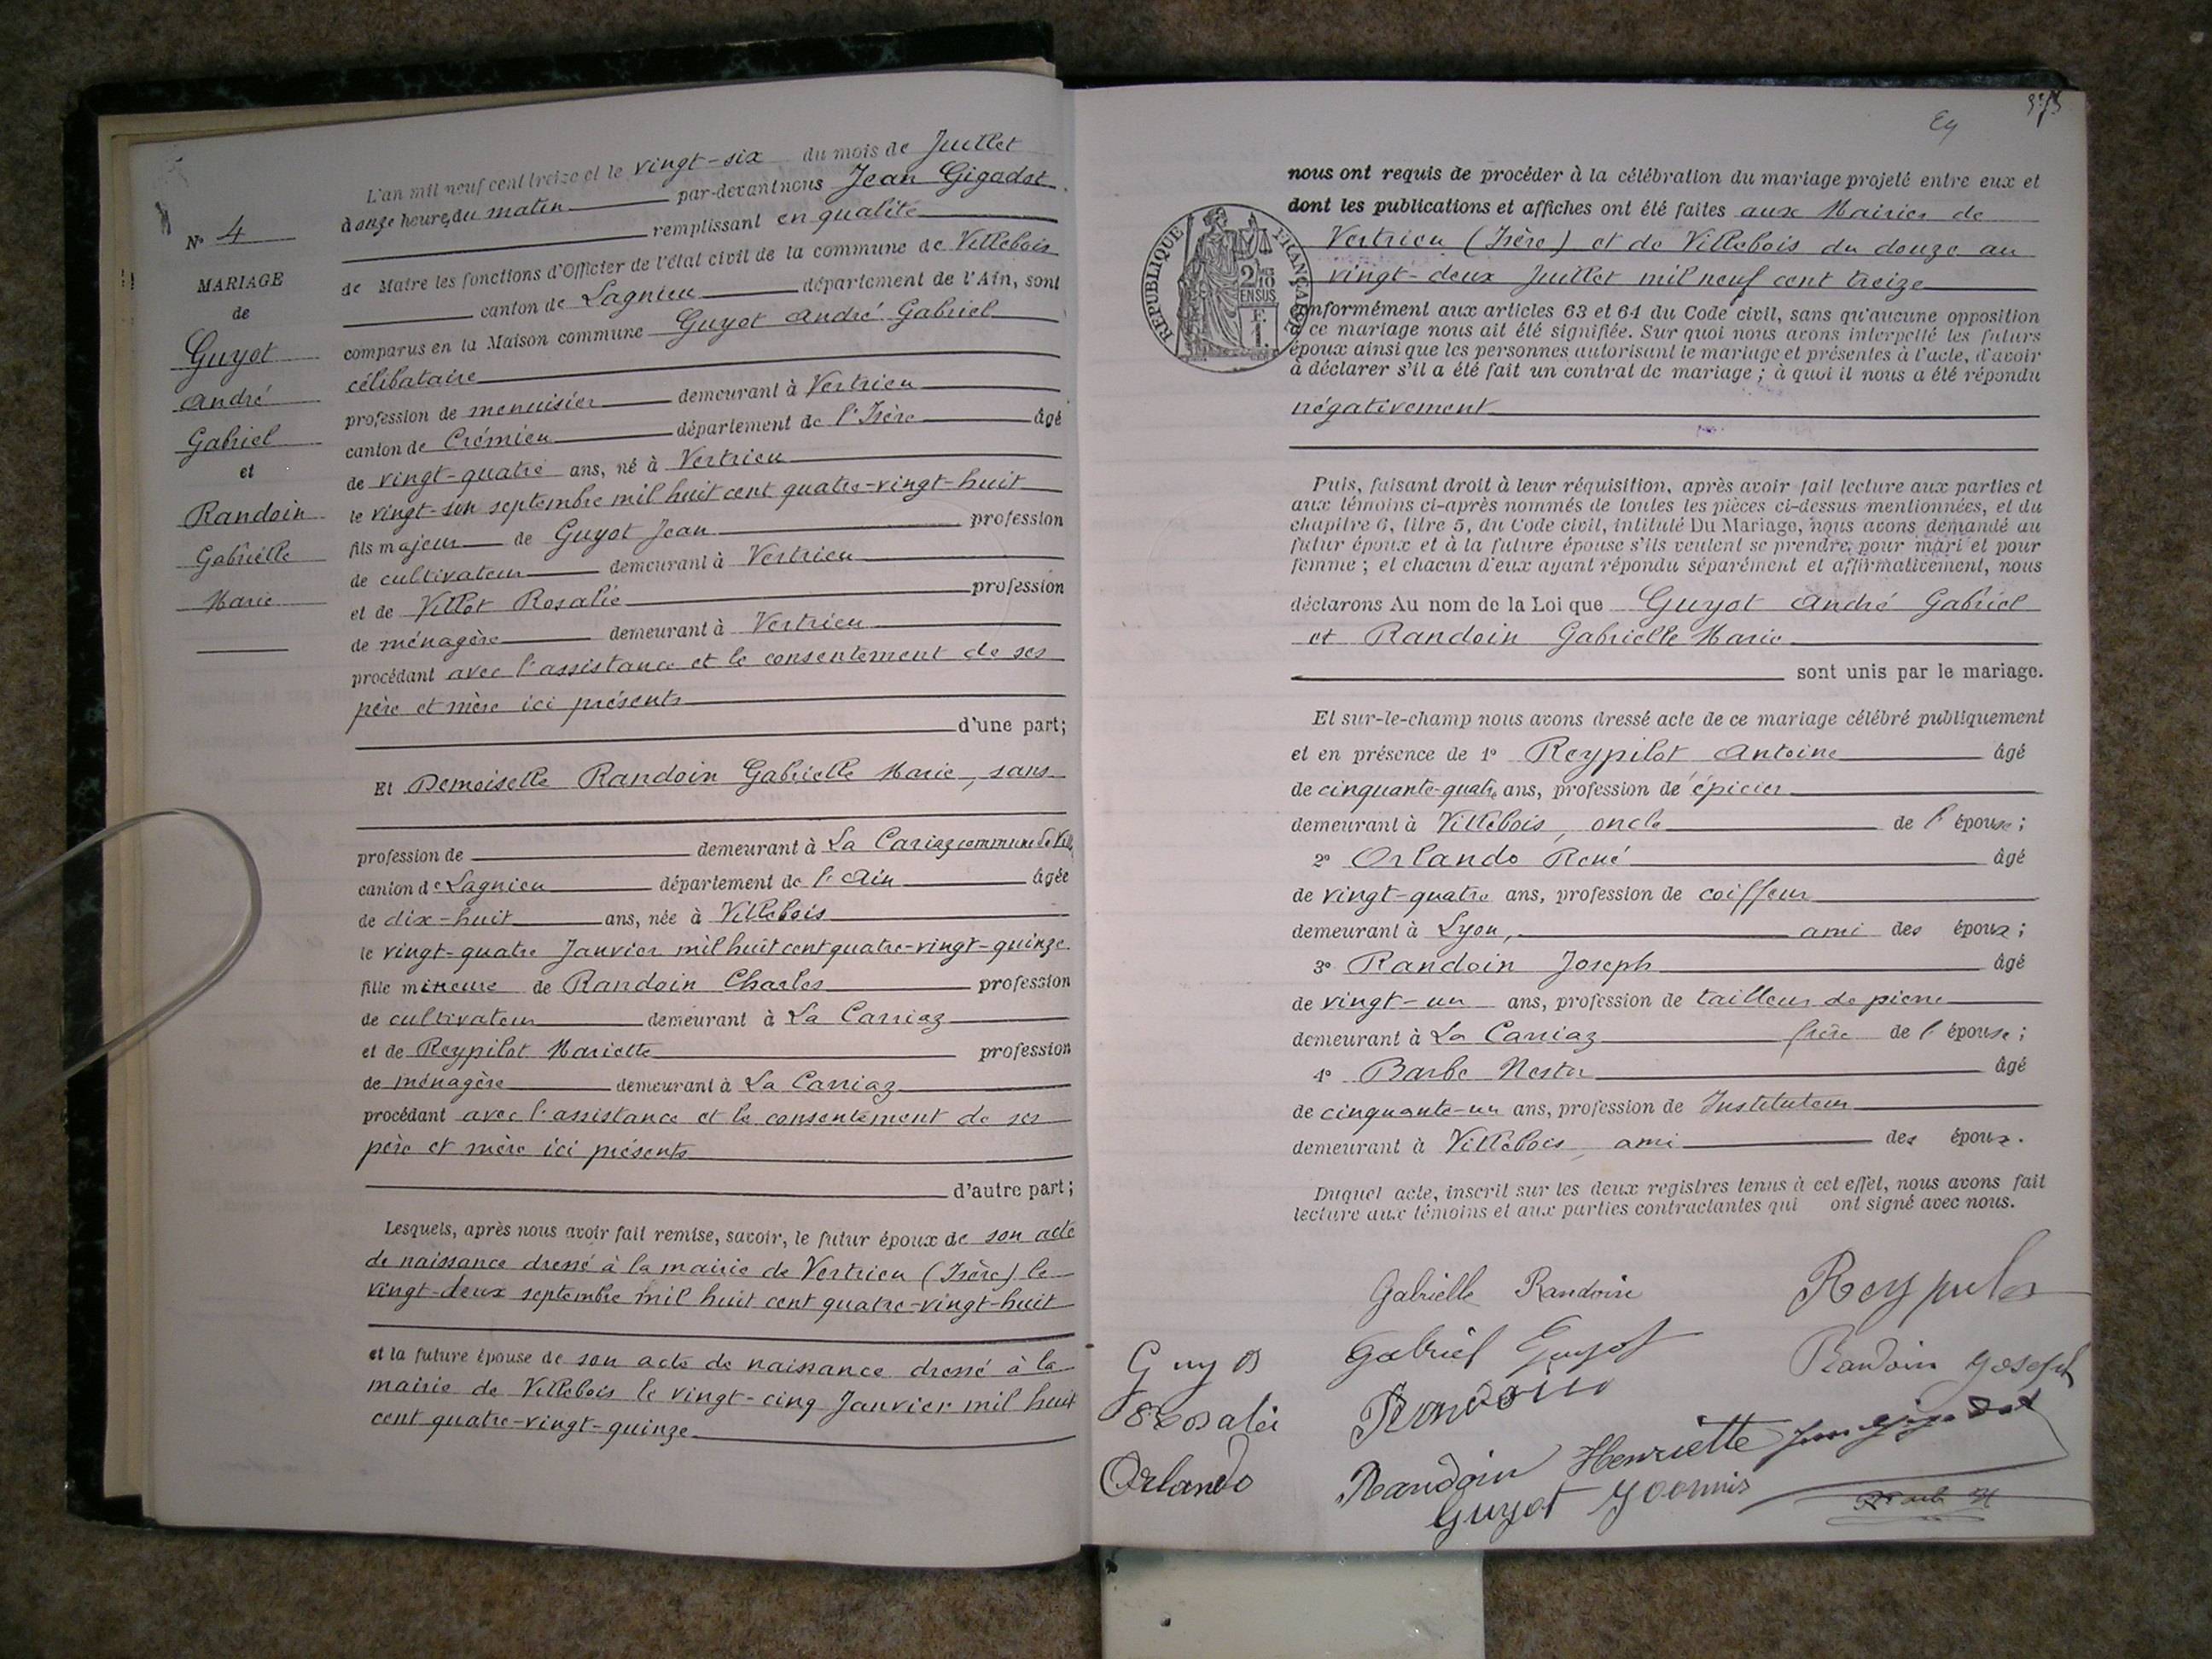 N° 4
MARIAGE
de
Guyot
André
Gabriel
et
Randoin
Gabrielle
Marie
L'an mil neuf cent treize et le vingt-six du mois de Juillet
à onze heures du matin par-devant nous Jean Gigadot
remplissant en qualité
de Maire les fonctions d'Officier de l'état civil de la commune de Villebois
canton de Lagnieu département de l'Ain, sont
comparus en la Maison commune Guyot André Gabriel
célibataire
profession de menuisier demeurant à Vertrieu
canton de Crémieu département de l'Isère âgé
de vingt-quatre ans, né à Vertrieu
le vingt-un septembre mil huit cent quatre-vingt-huit
fils majeur de Guyot Jean profession
de cultivateur demeurant à Vertrieu
et de Villot Rosalie profession
de ménagère demeurant à Vertrieu
procédant avec l'assistance et le consentement de ses
père et mère ici présents
d'une part;
Et Demoiselle Randoin Gabrielle Marie, sans
profession de demeurant à La Carriaz commune de Vill
canton de Lagnieu département de l'Ain âgée
de dix-huit ans, née à Villebois
le vingt-quatre Janvier mil huit cent quatre-vingt-quinze
fille mineure de Randoin Charles profession
de cultivateur demeurant à La Carriaz
et de Reypilot Mariette profession
de ménagère demeurant à La Carriaz
procédant avec l'assistance et le consentement de ses
père et mère ici présents
d'autre part;
Lesquels, après nous avoir fait remise, savoir, le futur époux de son acte
de naissance dressé à la mairie de Vertrieu (Isère) le
vingt-deux septembre mil huit cent quatre-vingt-huit
et la future épouse de son acte de naissance dressé à la
mairie de Villebois le vingt-cinq Janvier mil huit
cent quatre-vingt-quinze
nous ont requis de procéder à la célébration du mariage projeté entre eux et
dont les publications et affiches ont été faites aux Mairies de
Vertrieu (Isère) et de Villebois du douze au
vingt-deux Juillet mil neuf cent treize
RÉPUBLIQUE FRANÇAISE
2/10
EN SUS
F.
1.
conformément aux articles 63 et 64 du Code civil, sans qu'aucune opposition
à ce mariage nous ait été signifiée. Sur quoi nous avons interpellé les futurs
époux ainsi que les personnes autorisant le mariage et présentes à l'acte, d'avoir
à déclarer s'il a été fait un contrat de mariage; à quoi il nous a été répondu
négativement
Puis, faisant droit à leur réquisition, après avoir fait lecture aux parties et
aux témoins ci-après nommés de toutes les pièces ci-dessus mentionnées, et du
chapitre 6, titre 5, du Code civil, intitulé Du Mariage, nous avons demandé au
futur époux et à la future épouse s'ils veulent se prendre pour mari et pour
femme; et chacun d'eux ayant répondu séparément et affirmativement, nous
déclarons Au nom de la Loi que Guyot André Gabriel
et Randoin Gabrielle Marie
sont unis par le mariage.
Et sur-le-champ nous avons dressé acte de ce mariage célébré publiquement
et en présence de 1° Reypilot Antoine âgé
de cinquante-quatre ans, profession de épicier
demeurant à Villebois, oncle de l'épouse;
2° Orlando René âgé
de vingt-quatre ans, profession de coiffeur
demeurant à Lyon, ami des époux;
3° Randoin Joseph âgé
de vingt-un ans, profession de tailleur de pierre
demeurant à La Carriaz frère de l'épouse;
4° Barbe Nestor âgé
de cinquante-un ans, profession de Instituteur
demeurant à Villebois, ami des époux.
Duquel acte, inscrit sur les deux registres tenus à cet effet, nous avons fait
lecture aux témoins et aux parties contractantes qui ont signé avec nous.
Gabrielle Randoin
Gabriel Guyot
Randoin Joseph
Orlando
Randoin Henriette
Guyot